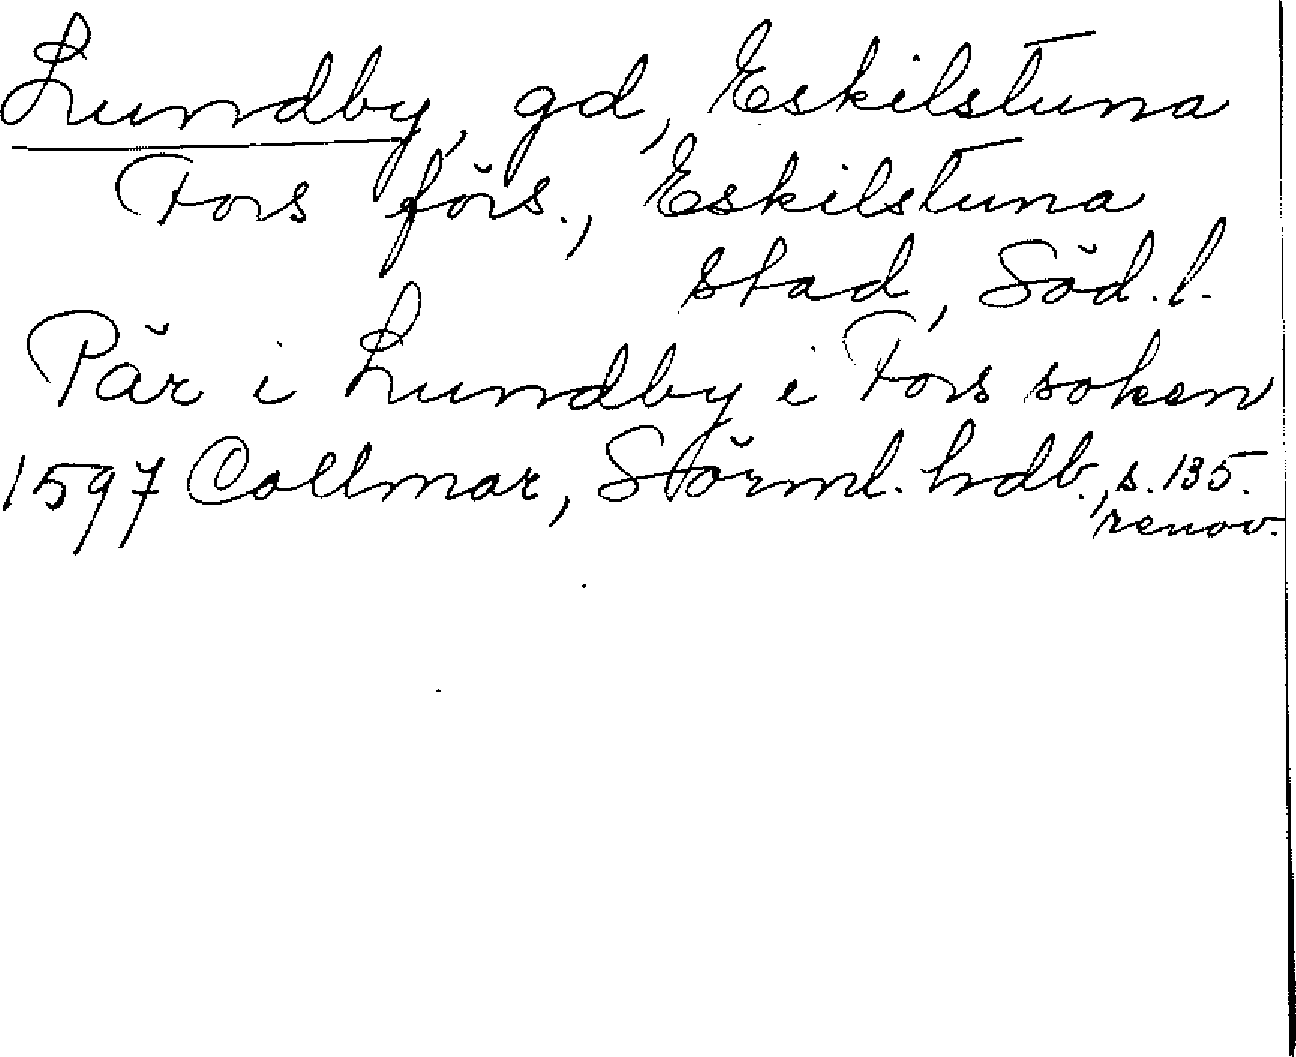 Lundby, gd, Eskilstuna
Fors förs., Eskilstuna
stad, Söd. l.
Pär i Lundby i Fors soken
1597 Collmar, Störml. hdb., s. 135.
renov.